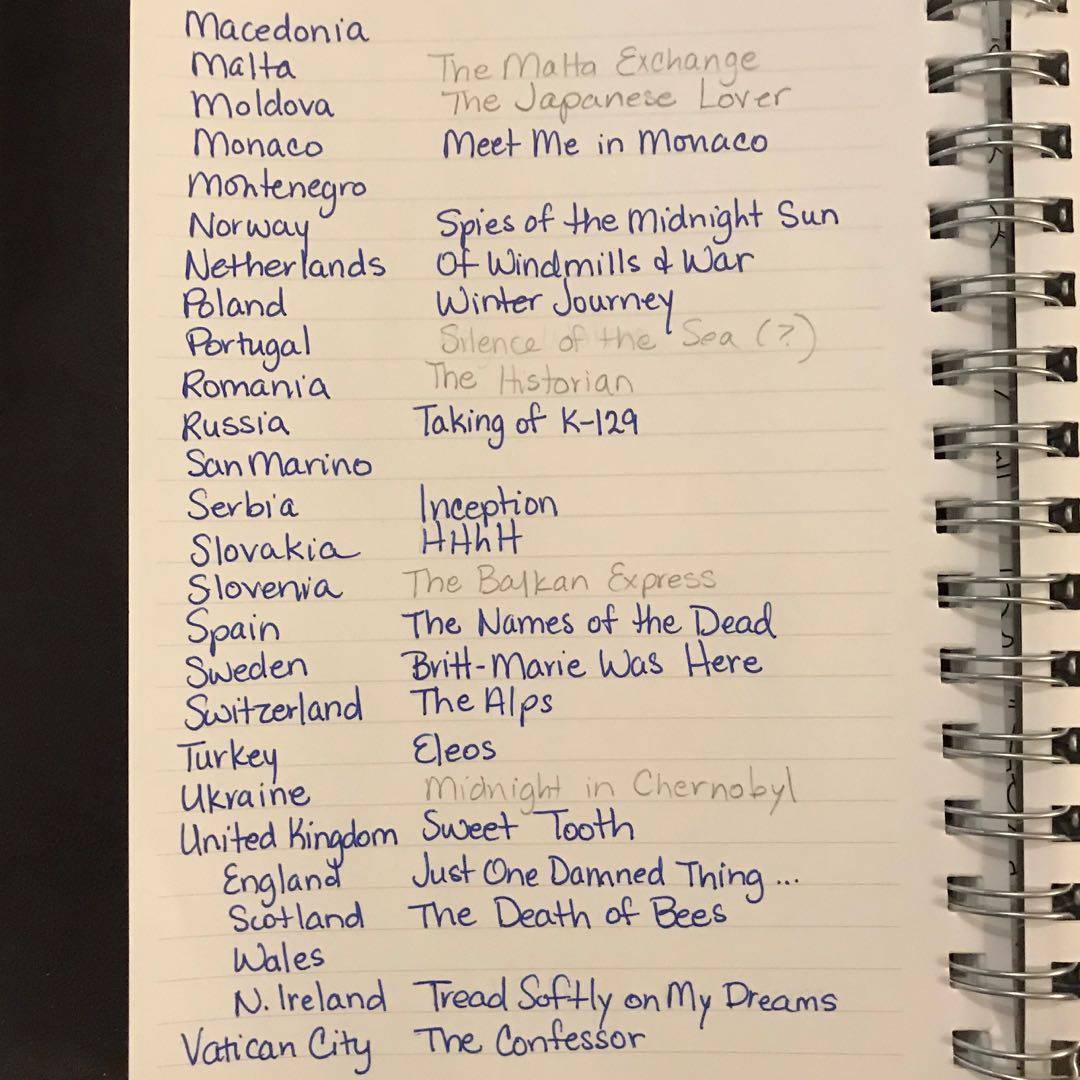 Macedonia
Malta The Malta Exchange
Moldova The Japanese Lover
Monaco Meet Me in Monaco
Montenegro
Norway Spies of the Midnight Sun
Netherlands Of Windmills & War
Poland Winter Journey
Portugal Silence of the Sea (?)
Romania The Historian
Russia Taking of K-129
San Marino
Serbia Inception
Slovakia HHhH
Slovenia The Balkan Express
Spain The Names of the Dead
Sweden Britt-Marie Was Here
Switzerland The Alps
Turkey Eleos
Ukraine Midnight in Chernobyl
United Kingdom Sweet Tooth
England Just One Damned Thing ...
Scotland The Death of Bees
Wales
N. Ireland Tread Softly on My Dreams
Vatican City The Confessor